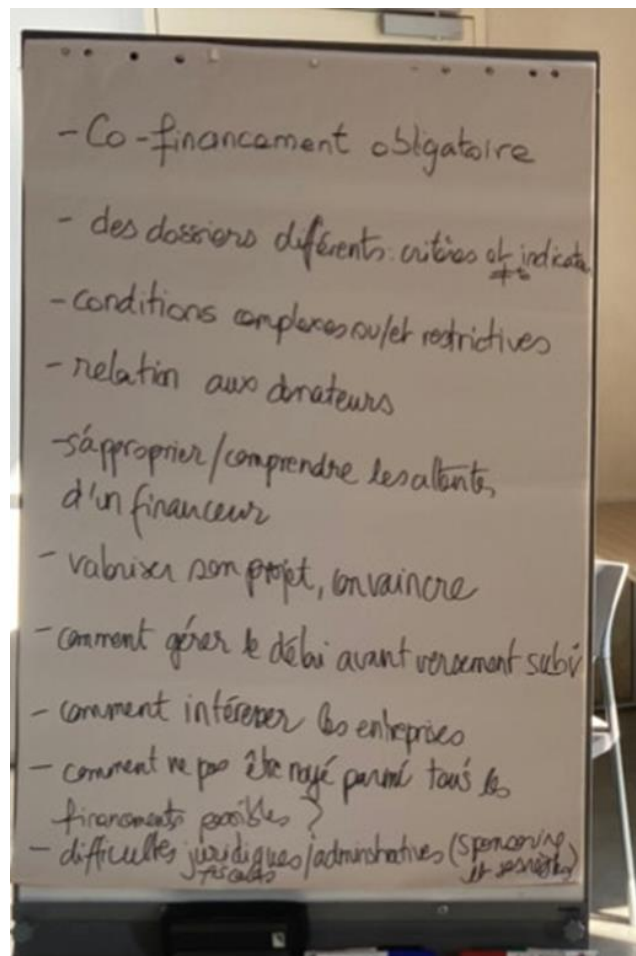 - Co-financement obligatoire
- des dossiers différents: critères et indicate
- conditions complexes ou/et restrictives
- relation aux donateurs
- s'approprier/comprendre les attentes
d'un financeur
- valoriser son projet, convaincre
- comment gérer le délai avant versement subv
- comment intéresser les entreprises
- comment ne pas être noyé parmi tous les
financements possibles ?
- difficultés juridiques/administratives (sponsoring
fiscales et